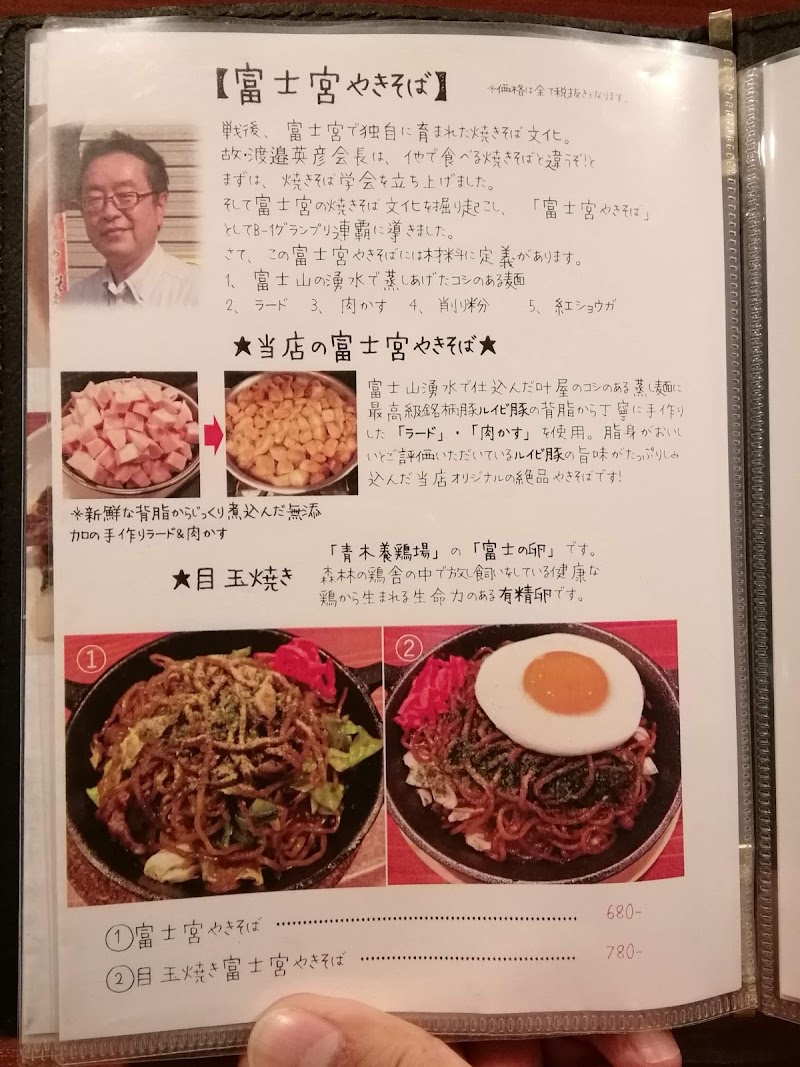 【富士宮やきそば】
※価格は全て税抜きとなります。
戦後、富士宮で独自に育まれた焼きそば文化。
故・渡邉英彦会長は、「他で食べる焼きそばと違うぞ!」と
まずは、焼きそば学会を立ち上げました。
そして富士宮の焼きそば文化を掘り起こし、「富士宮やきそば」
としてB-1グランプリ連覇に導きました。
さて、この富士宮やきそばには材料に定義があります。
1、富士山の湧水で蒸しあげたコシのある麺
2、ラード 3、肉かす 4、削り粉 5、紅ショウガ
★当店の富士宮やきそば★
富士山湧水で仕込んだ叶屋のコシのある蒸し麺に
最高級銘柄豚ルイビ豚の背脂から丁寧に手作り
した「ラード」・「肉かす」を使用。脂身がおいし
いとご評価いただいているルイビ豚の旨味がたっぷりしみ
込んだ当店オリジナルの絶品やきそばです!
※新鮮な背脂からじっくり煮込んだ無添
加の手作りラード&肉かす
★目玉焼き
「青木養鶏場」の「富士の卵」です。
森林の鶏舎の中で放し飼いをしている健康な
鶏から生まれる生命力のある有精卵です。
①
②
①富士宮やきそば ………… 680-
②目玉焼き富士宮やきそば ………… 780-